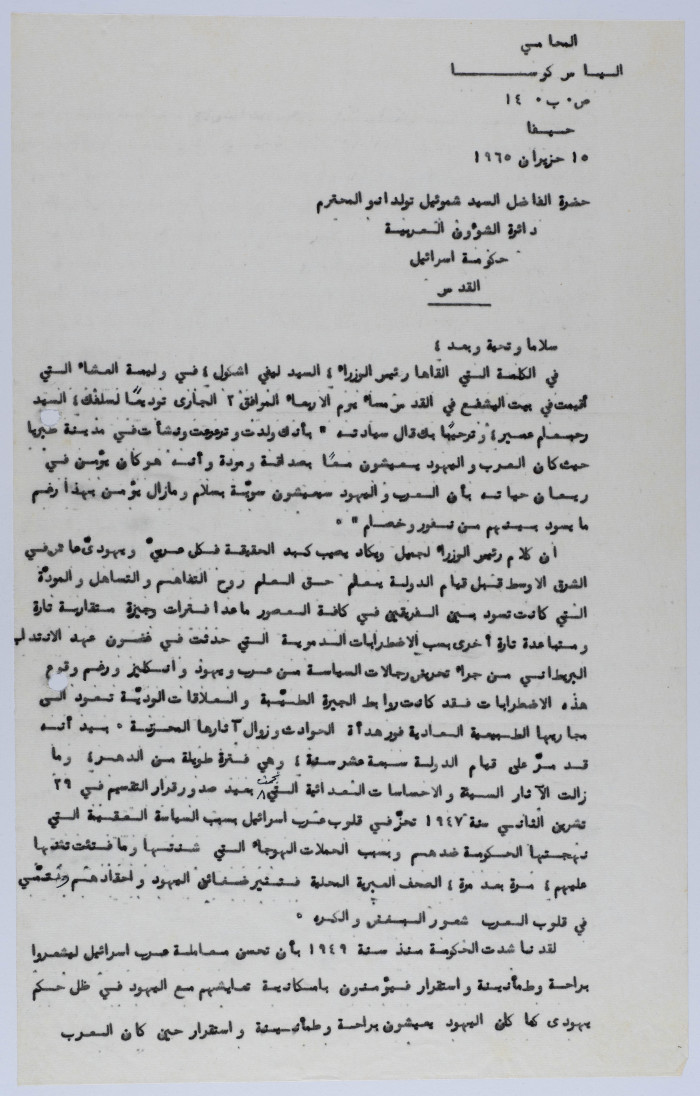 المحامي
الياس كوسا
ص٠ب٠ ١٤٠
حيفا
١٥ حزيران ١٩٦٥
حضرة الفاضل السيد شموئيل توليدانو المحترم
دائرة الشؤون العربية
حكومة اسرائيل
القدس
سلاما وتحية وبعد ٤
في الكلمة التي القاها رئيس الوزراء ٤ السيد ليفي اشكول ٤ في وليمة العشاء التي
أقيمت في بيت اليشفع في القدس مساء يوم الاربعاء الموافق ٢ الجارى توديعًا لسلفك ٤ السيد
رحبعام عمير ٤ وترحيبًا بك قال سيادته " بأنك ولدت وترعرعت ونشأت في مدينة طبريا
حيث كان العرب واليهود يعيشون معًا بصداقة ومودة وأنه هو كان يؤمن في
ريعان حياته بأن العرب واليهود سيعيشون سويّة بسلام ومازال يؤمن بهذا رغم
ما يسود بينهم من نفور وخصام " ٠
ان كلام رئيس الوزراء لجميل ويكاد يصيب كبد الحقيقة فكل عربيّ ويهودىّ عاش في
الشرق الاوسط قبل قيام الدولة يعلم حق العلم روح التفاهم والتساهل والمودّة
التي كانت تسود بين الفريقين في كافة العصور ماعدا فترات وجيزة متقاربة تارة
ومتباعدة تارة أخرى بسبب الاضطرابات الدموية التي حدثت في غضون عهد الانتداب
البريطاني من جراء تحريض رجالات السياسة من عرب ويهود وانكليز ورغم وقوع
هذه الاضطرابات فقد كانت روابط الجيرة الطيّبة والعلاقات الوديّة تعود الى
مجاريها الطبيعية العادية فور هدأة الحوادث وزوال آثارها المحزنة ٠ بيد أنه
قد مرّ على قيام الدولة سبعة عشر سنة ٤ وهي فترة طويلة من الدهر ٤ وما
زالت الآثار السيئة والاحساسات العدائية التي نجمت بعيد صدور قرار التقسيم في ٢٩
تشرين الثاني سنة ١٩٤٧ تحزّ في قلوب عرب اسرائيل بسبب السياسة العقيمة التي
نهجتها الحكومة ضدهم وبسبب الحملات الهوجاء التي شنتها وما فتئت تشنها
عليهم ٤ مرة بعد مرة ٤ الصحف العبرية المحلية فتثير ضغائن اليهود واحقادهم وتنمّي
في قلوب العرب شعور البغض والكره ٠
لقد ناشدت الحكومة منذ سنة ١٩٤٩ بأن تحسن معاملة عرب اسرائيل ليشعروا
براحة وطمأنينة واستقرار فيؤمنون بامكانية تعايشهم مع اليهود في ظل حكم
يهودى كما كان اليهود يعيشون براحة وطمأنينة واستقرار حين كان العرب